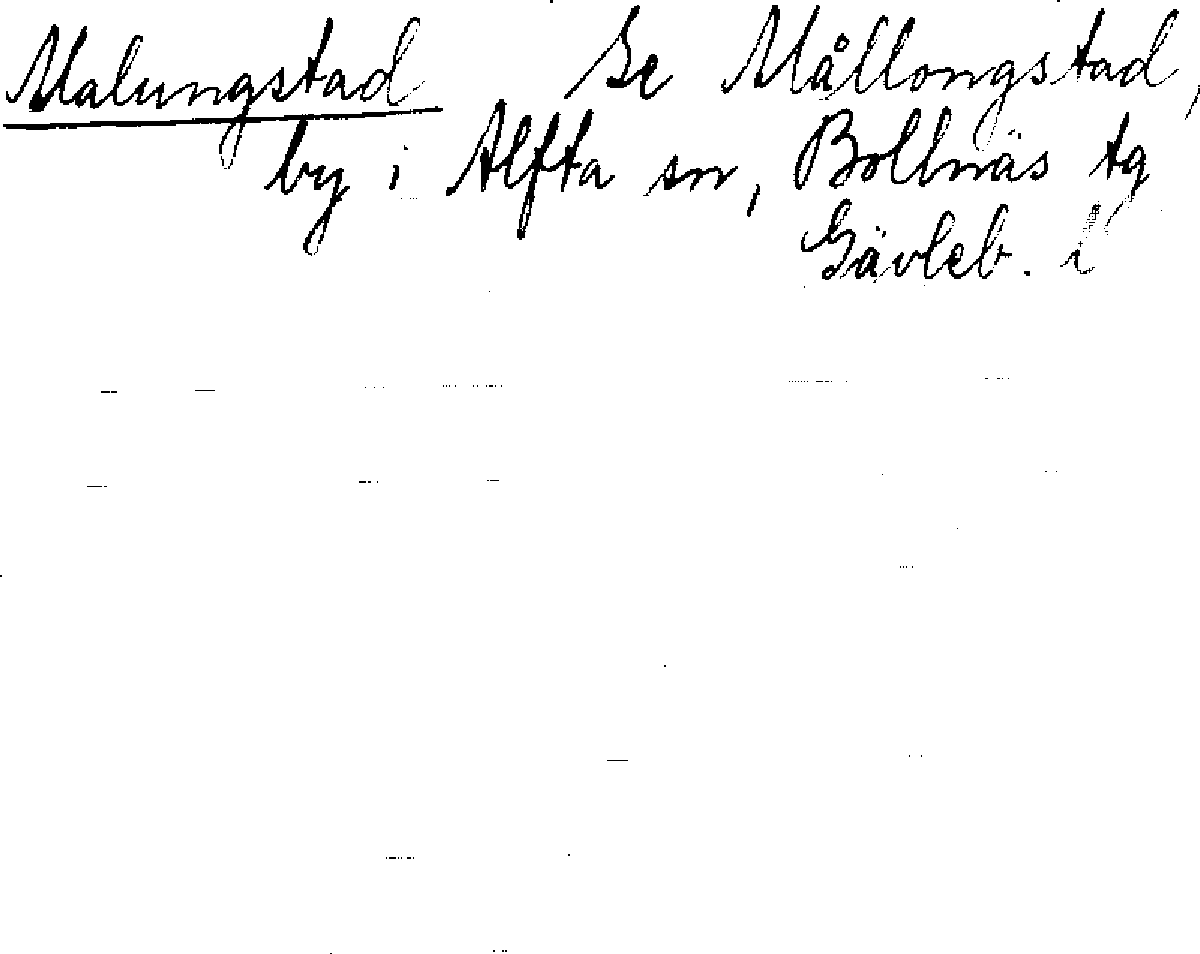 Malungstad Se Mållongstad,
by i Alfta sn, Bollnäs tg
Gävleb. l